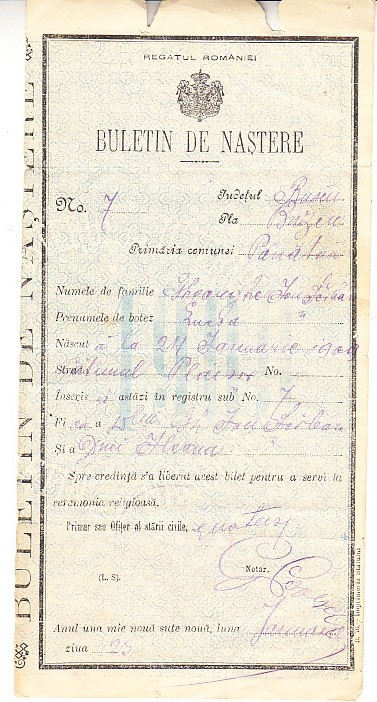 REGATUL ROMÂNIEI
BULETIN DE NAȘTERE
No. 7
Judeţul Buzeu
Pla Buzeu
Primăria comunei
Numele de familie Gheorghe Ion Șerban
Prenumele de botez
Născut ă la 24 Ianuarie 1909
No.
Inscris ă astăzi în registru sub No. 7
Fi ca a D lui Gh Ion Șerban
Și a Dnei Ileana
Spre credinţă s'a liberat acest bilet pentru a servi la
ceremonie religioasă.
Primar sau Ofiţer al stării civile,
(L. S). Notar,
Anul una mie nouă sute nouă, luna Ianuarie
ziua 25
BULETIN DE NAȘTERE
Imprimeria Statului